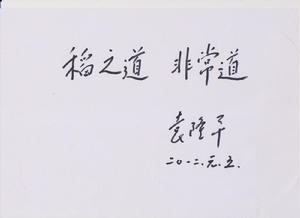 稻之道 非常道
袁隆平
二〇一二.元.五.